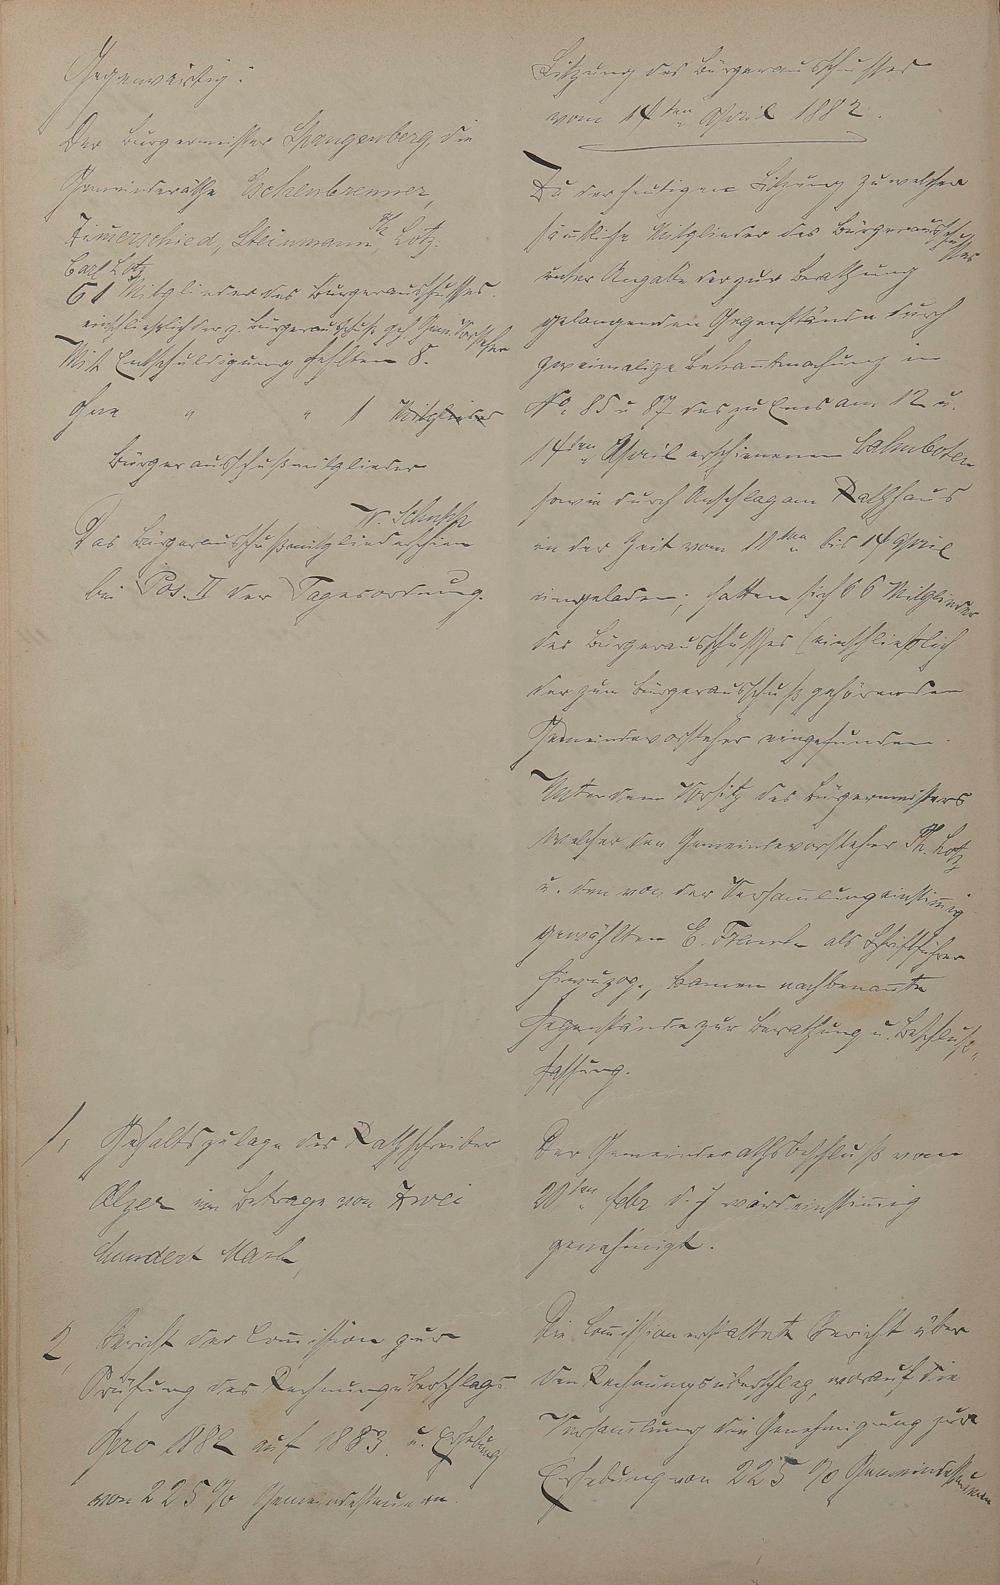 Gegenwärtig:
Der Bürgermeister Spangenberg, die
Gemeinderäthe Eschenbrenner,
Zimerschied, Steinmann, Ph. Lotz.
Carl Lotz
61 Mitglieder des Bürgerausschusses.
einschließlich der z. Bürgerausschuß geh. Gem. Vorsteher
Mit Entschuldigung fehlten 8.
Ohne " " 1 Mitglieder
Bürgerausschußmitglieder
W. Schupp
Das Bürgerausschußmitglied erschien
bei Pos. II der Tagesordnung.
1, Gehaltszulage des Rathschreiber
Elzer im Betrage von Zwei
hundert Mark,
2, Bericht der Comission zur
Prüfung des Rechnungsüberschlags
pro 1882 auf 1883. u. Erhebung
von 225 % Gemeindesteuern.
Sitzung des Bürgerausschusses
vom 14ten April 1882.
Zu der heutigen Sitzung zu welcher
sämtliche Mitglieder des Bürgerausschusses
unter Angabe der zur Berathung
gelangenden Gegenstände durch
zweimalige Bekantmachung in
No. 85 u 87 des zu Ems am 12 u.
14ten April erschienenen Lahnboten
sowie durch Anschlag am Rathhaus
in der Zeit vom 11ten bis 14 April
eingeladen, hatten sich 66 Mitglieder
des Bürgerausschusses (einschließlich
der zum Bürgerausschuß gehörenden
Gemeindevorsteher eingefunden.
Unter dem Vorsitz des Bürgermeisters
welcher den Gemeindevorsteher Ph. Lotz
u. den von der Versamlung einstimig
gewählten E. als Schriftführer
hinzuzog, kamen nachbenante
Gegenstände zur Berathung u. Beschluß-
fassung.
Der Gemeinderathsbeschluß vom
20ten Febr d. J wird einstimig
genehmigt.
Die Comission erstattete Bericht über
den Rechnungsüberschlag, worauf die
Versamlung die Genehmigung zur
Erhebung von 225 % Gemeindesteuern